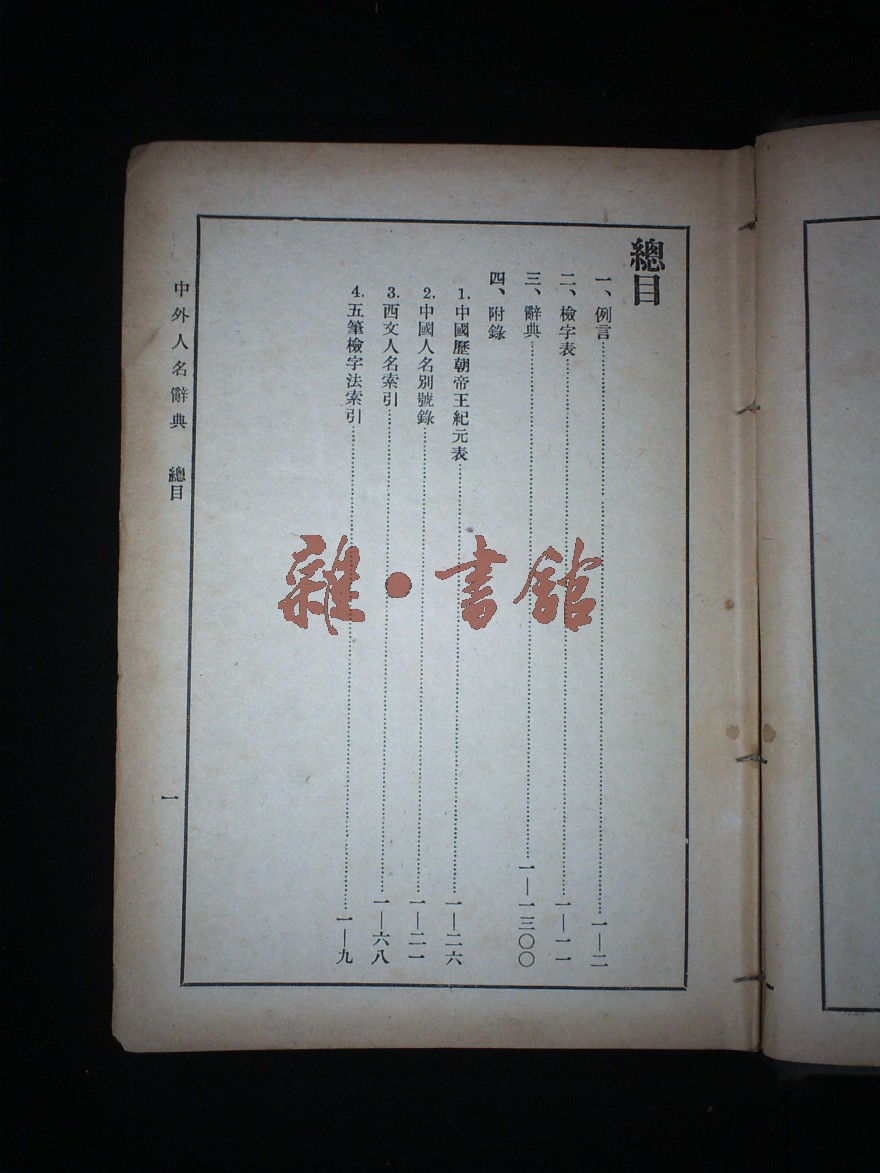 總目
一、例言……一—二
二、檢字表……一—一一
三、辭典……一—一三〇〇
四、附錄
1.中國歷朝帝王紀元表……一—二六
2.中國人名別號錄……一—二一
3.西文人名索引……一—六八
4.五筆檢字法索引……一—九
中外人名辭典 總目
一
雜·書館